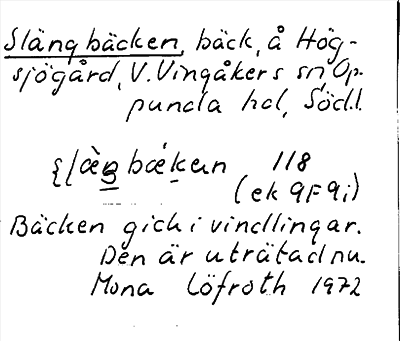 Slängbäcken, bäck, å Hög-
sjögård, V. Vingåkers sn, Op-
punda hd, Södl.
bæ̀kan 118
(ek 9F9i)
Bäcken gick i vindlingar.
Den är uträtad nu.
Mona Löfroth 1972